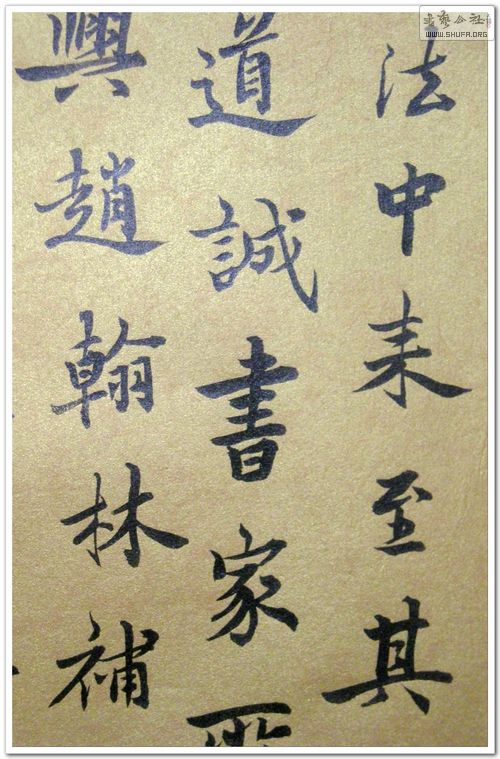 法中来至其
道誠書家所
興趙翰林補
書藝公社
WWW.SHUFA.ORG